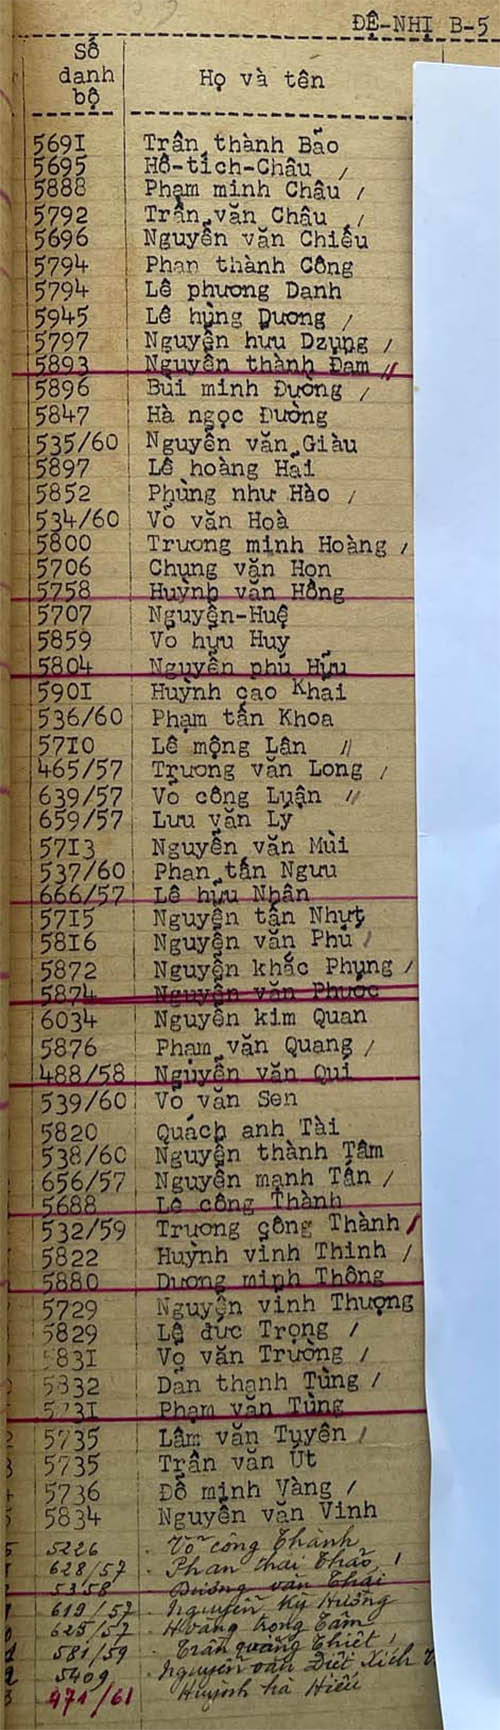 ĐỆ-NHỊ B-5
Số danh bộ Họ và tên
5691 Trần thành Bảo
5695 Hồ-tích-Châu /
5888 Phạm minh Châu /
5792 Trần văn Châu /
5696 Nguyễn văn Chiếu
5794 Phan thành Công
5794 Lê phương Danh
5945 Lê hùng Dương /
5797 Nguyễn hưu Dzụng /
5893 Nguyễn thành Đam //
5896 Bùi minh Đường /
5847 Hà ngọc Đường
535/60 Nguyễn văn Giàu
5897 Lê hoàng Hải
5852 Phùng như Hào /
534/60 Võ văn Hoà
5800 Trương minh Hoàng /
5706 Chung văn Hon
5758 Huỳnh văn Hồng
5707 Nguyễn-Huệ
5859 Võ hữu Huy
5804 Nguyễn phú Hữu
5901 Huỳnh cao Khai
536/60 Phạm tấn Khoa
5710 Lê mộng Lân //
465/57 Trương văn Long /
639/57 Võ công Luận //
659/57 Lưu văn Lý
5713 Nguyễn văn Mùi
537/60 Phan tấn Ngưu
666/57 Lê hữu Nhân
5715 Nguyễn tấn Nhựt
5816 Nguyễn văn Phú /
5872 Nguyễn khắc Phụng /
5874 Nguyễn văn Phước
6034 Nguyễn kim Quan
5876 Phạm văn Quang /
488/58 Nguyễn văn Quí
539/60 Võ văn Sen
5820 Quách anh Tài
538/60 Nguyễn thành Tâm
656/57 Nguyễn mạnh Tấn /
5688 Lê công Thành
532/59 Trương công Thành /
5822 Huỳnh vinh Thinh /
5880 Dương minh Thông
5729 Nguyễn vinh Thượng
5829 Lê đức Trọng /
5831 Võ văn Trường /
5832 Dan thanh Tùng /
5731 Phạm văn Tùng
5735 Lâm văn Tuyên /
5735 Trần văn Út
5736 Đỗ minh Vàng /
5834 Nguyễn văn Vinh
5226 Võ công Thành
628/57 Phan thai Thảo /
5358 Dương văn Thái
619/57 Nguyễn Kỳ Hương
625/57 Hoàng trọng Tâm
581/59 Trần quang Thiết /
5409 Nguyễn văn Diết
471/61 Huỳnh hà Hiếu